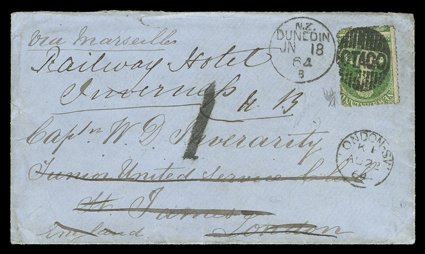 via Marseilles
N.Z.
DUNEDIN
JN 18
64
B
OTAGO
Railway Hotel
Inverness
N. B
1
Captn W D Inverarity
Junior United Service Club
St James
England London
LONDON-SW
K I
AU 22
64